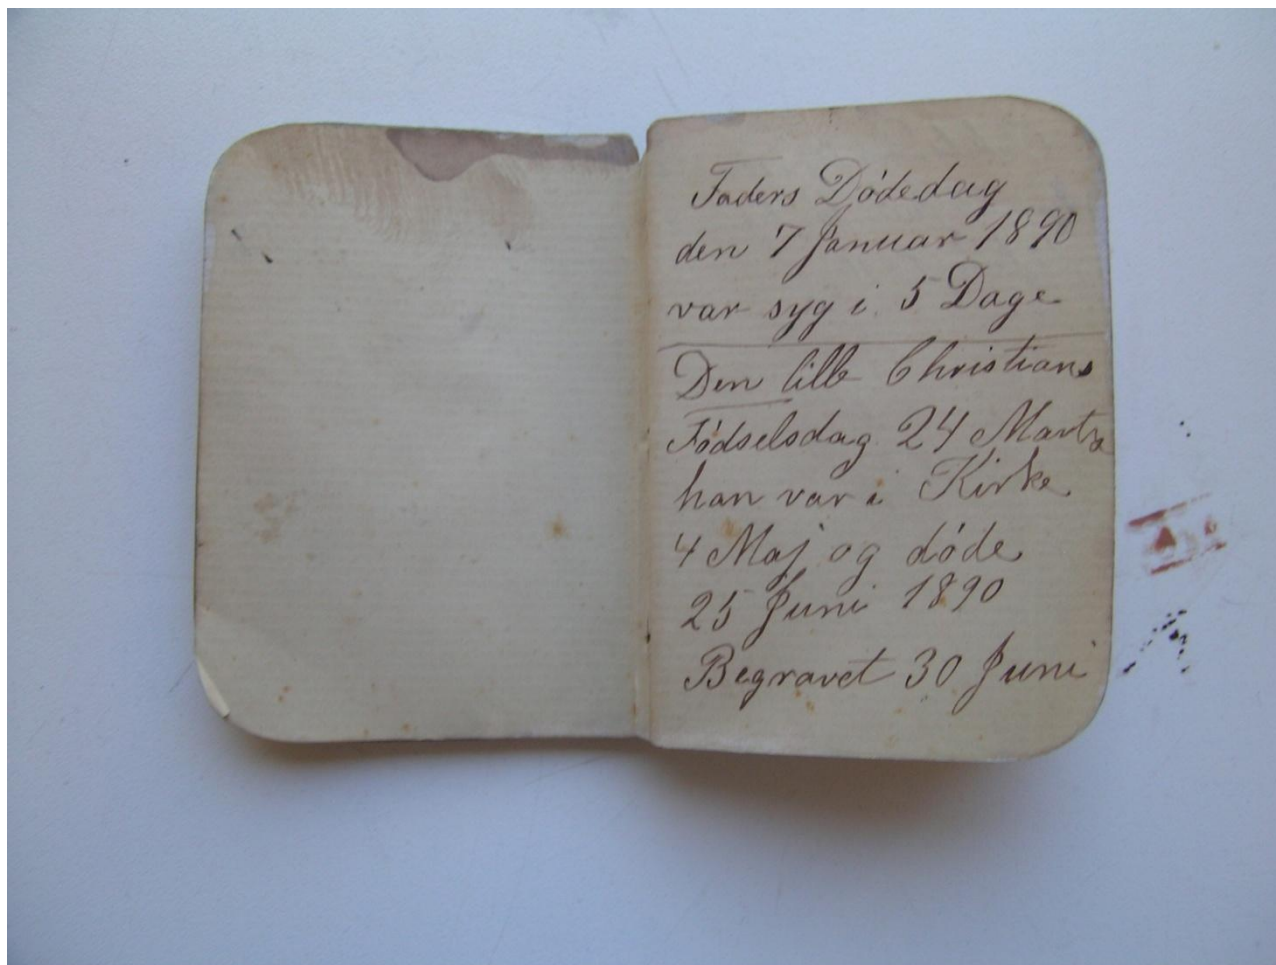 Faders Dødedag
den 7 Januar 1890
var syg i 5 Dage
Den lille Christians
Fødselsdag 24 Marts
han var i Kirke
4 Maj og døde
25 Juni 1890
Begravet 30 Juni